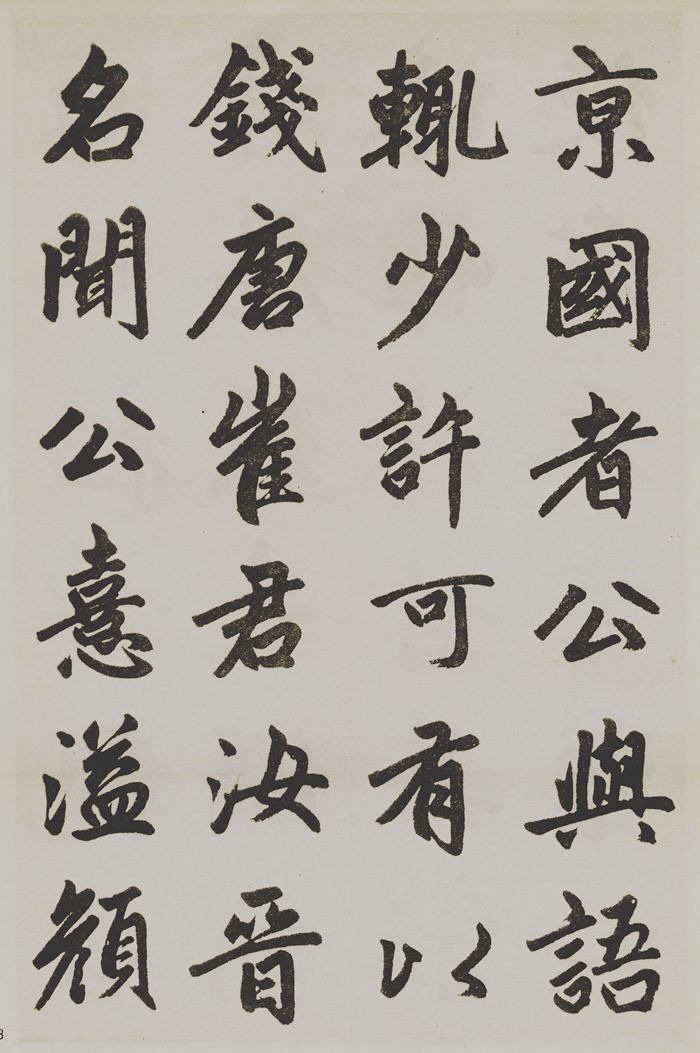 京國者公與語
輒少許可有以
錢唐崔君汝晉
名聞公憙溢顏